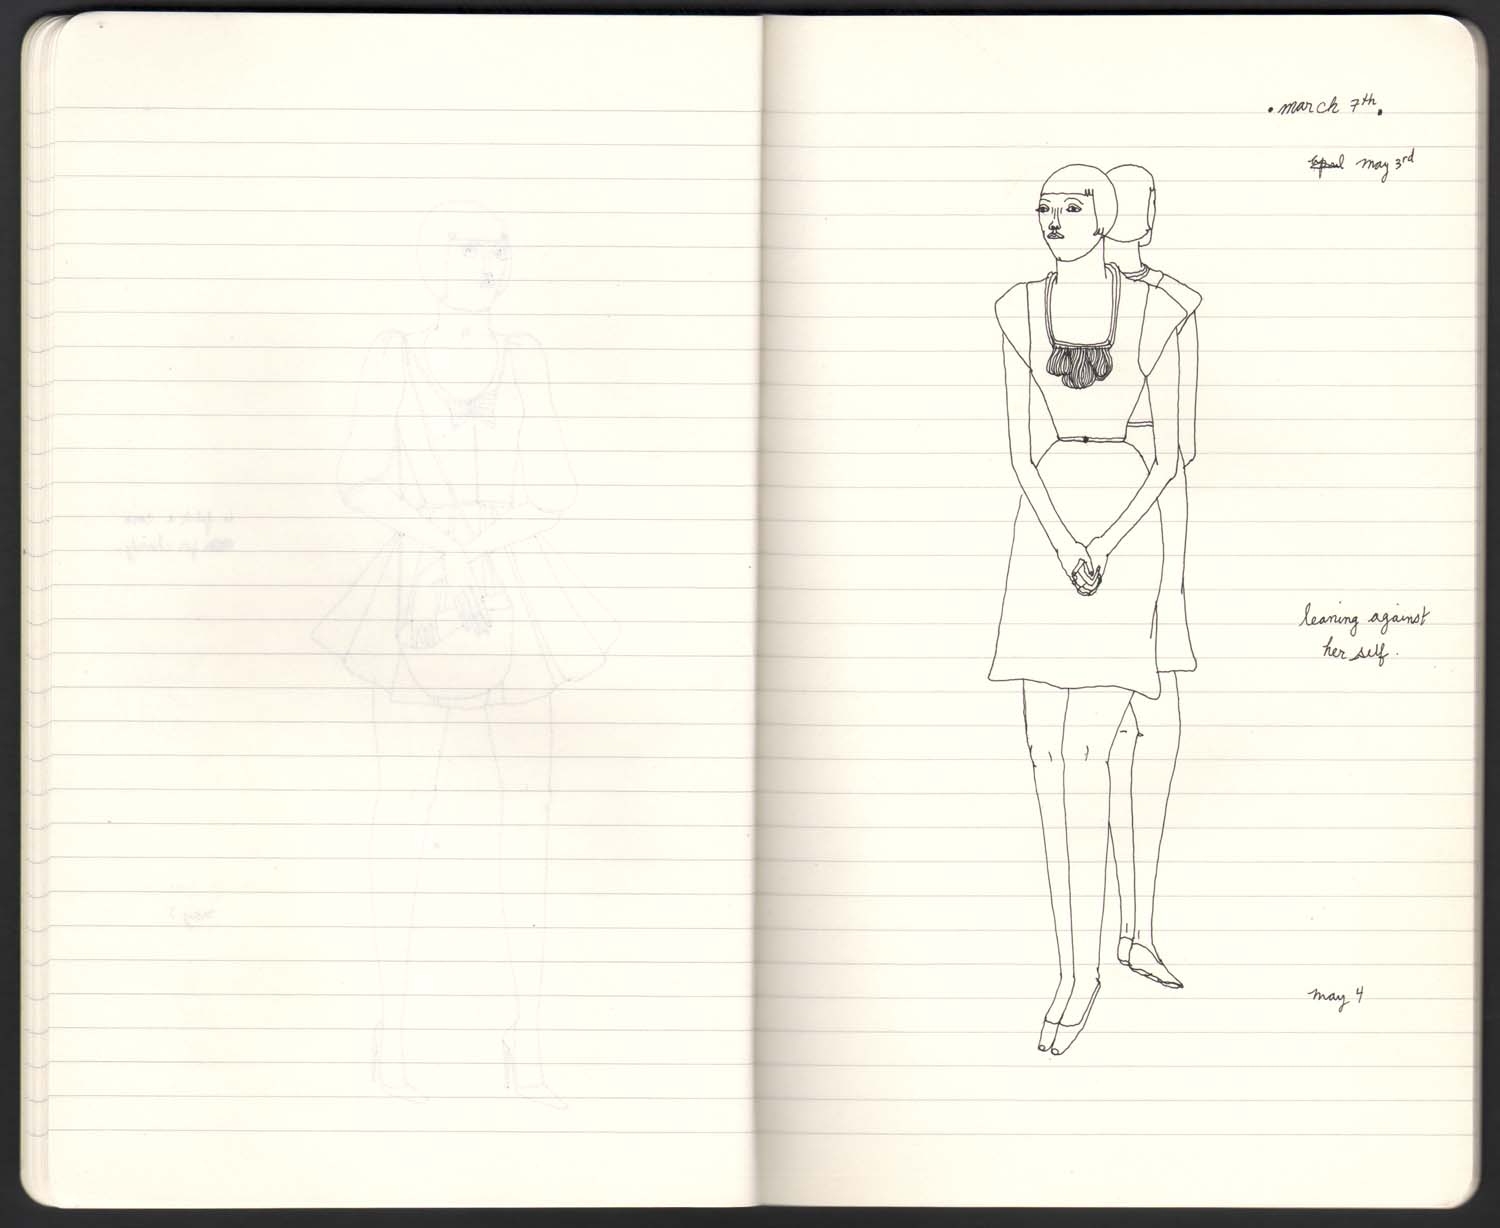 . march 7th.
april may 3rd
leaning against
her self.
may 4